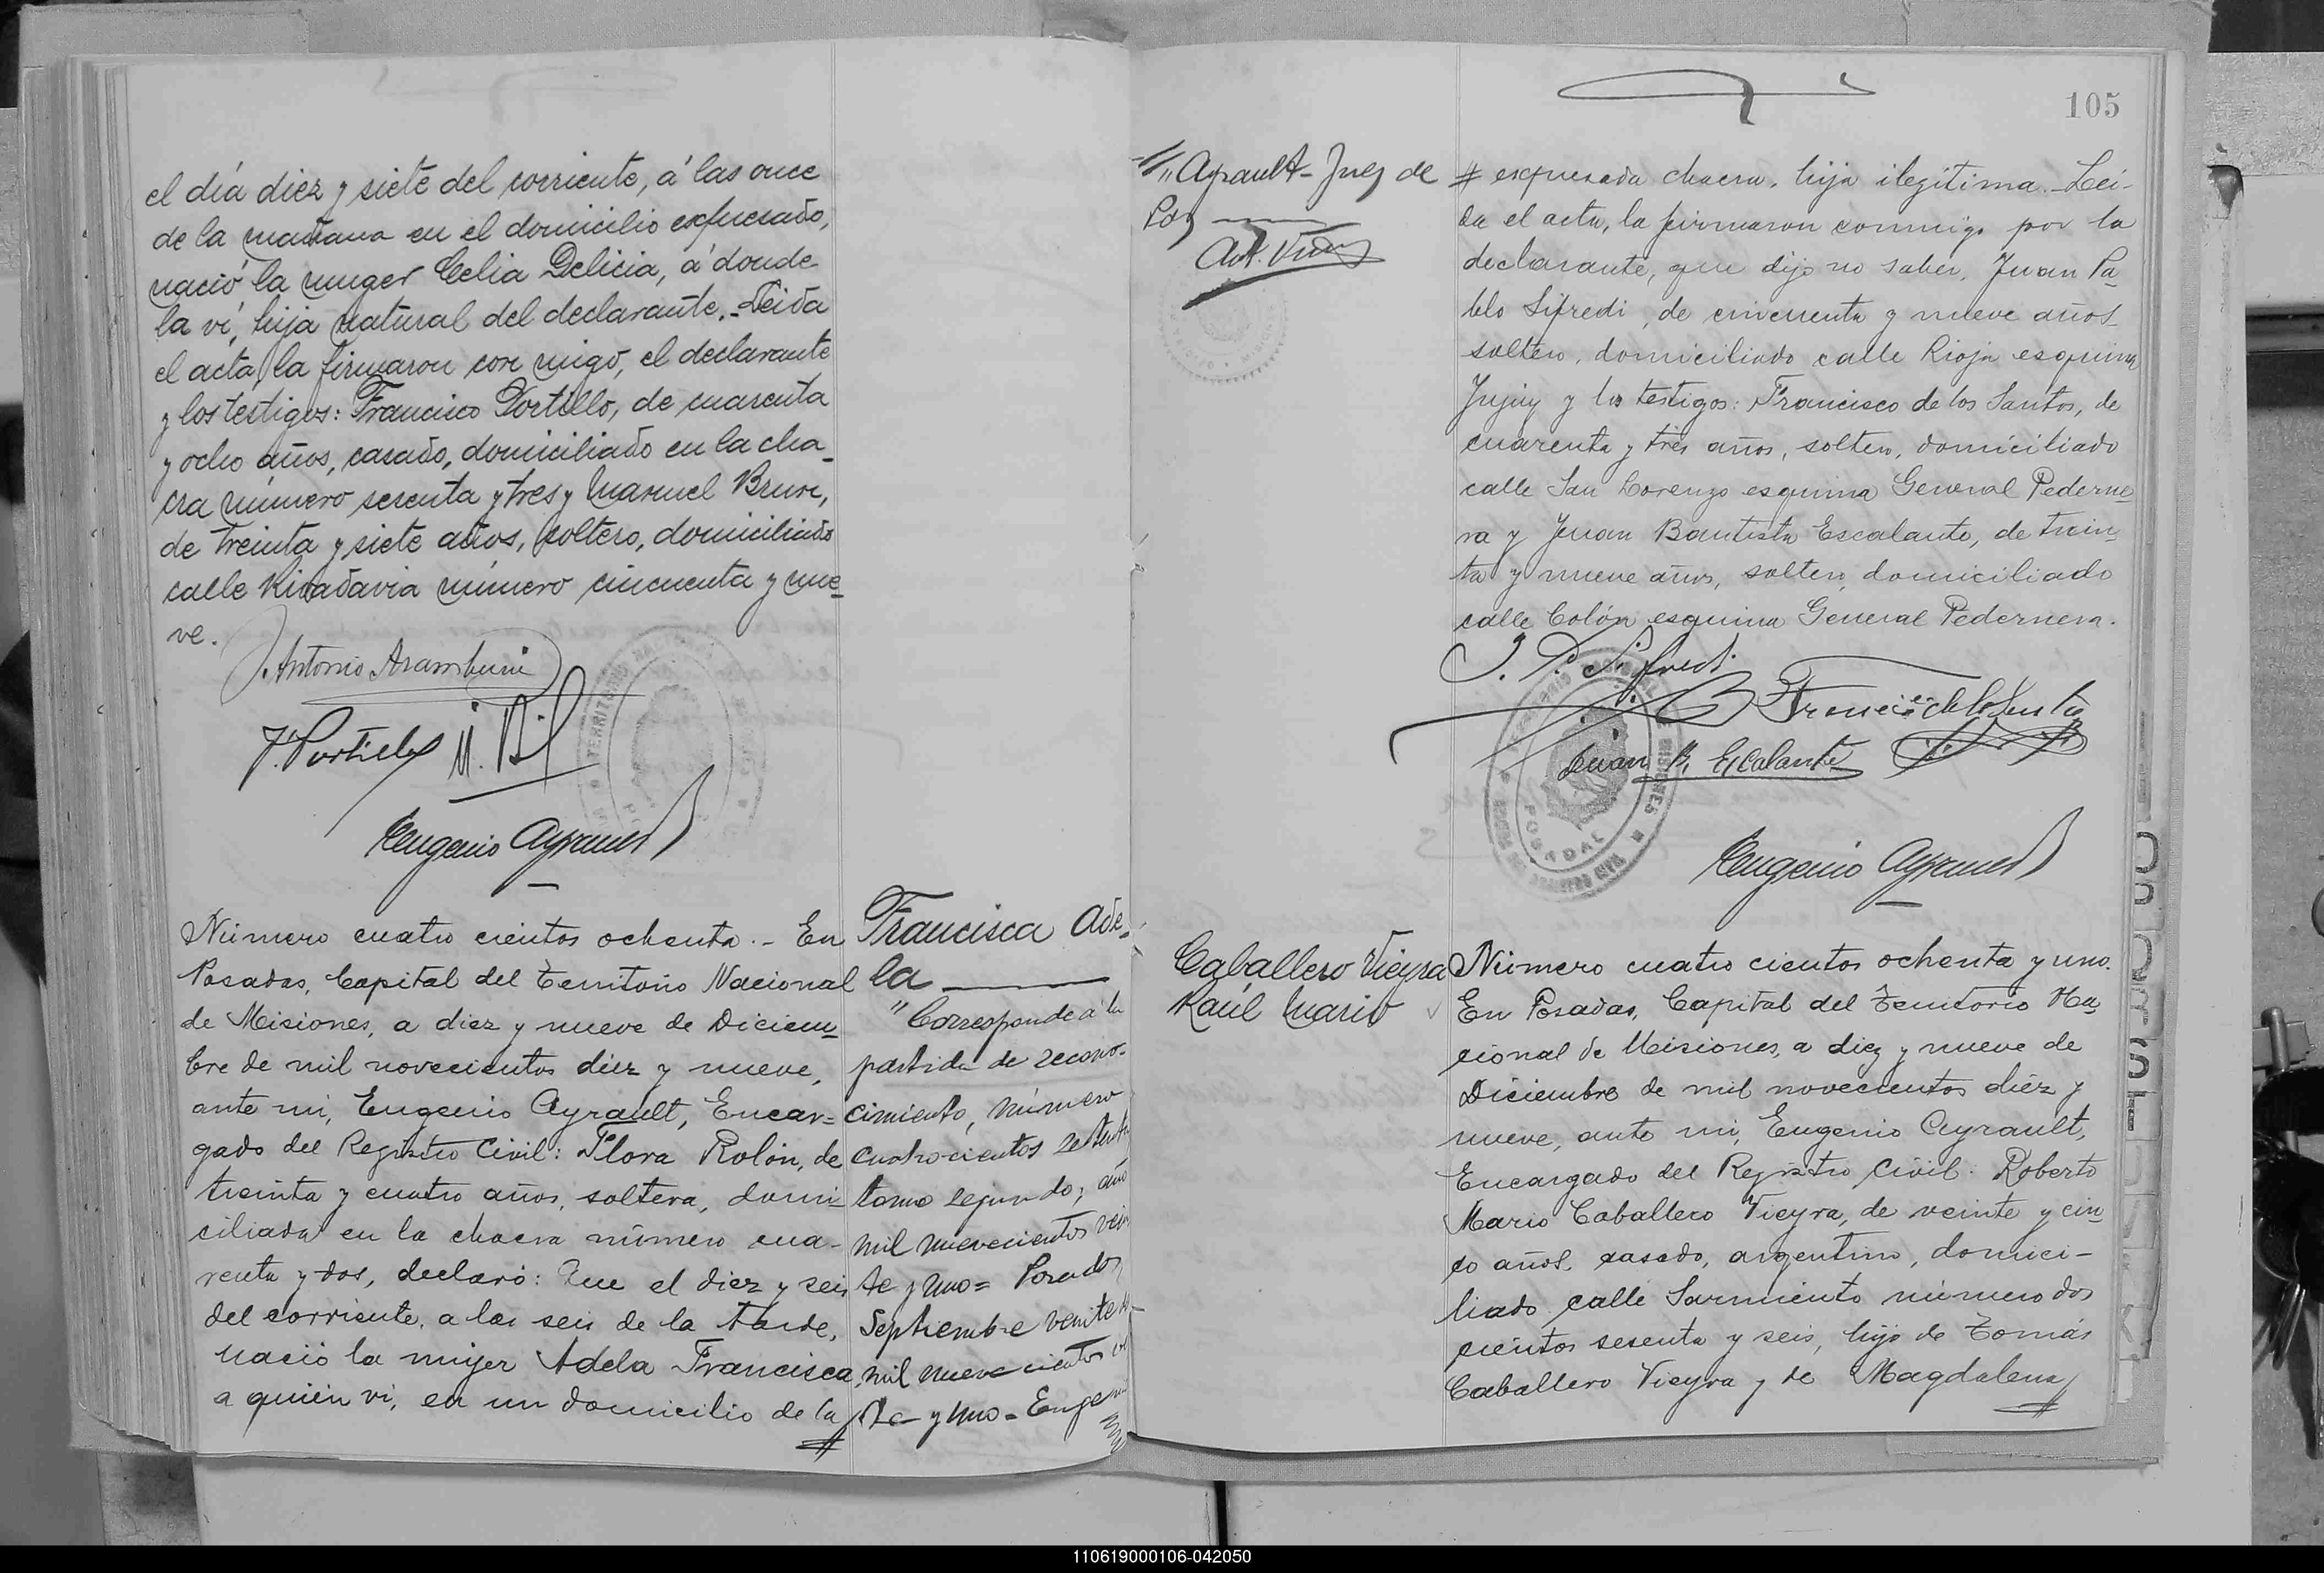 el día diez y siete del corriente, á las once
de la mañana en el domicilio expresado,
nació la muger Celia Delicia, á donde
la ví, hija natural del declarante.- Leida
el acta, la firmaron con migo, el declarante
y los testigos: Francisco Portillo, de cuarenta
y ocho años, casado, domiciliado en la cha_
cra número sesenta y tres y Manuel Brun,
de treinta y siete años, soltero, domiciliado
calle Rivadavia número cincuenta y nue_
ve.
J. Antonio Aramburu
F. Portillo
Eugenio Ayrault
Número cuatro cientos ochenta.- En
Posadas, Capital del Territorio Nacional
de Misiones, a diez y nueve de Diciem_
bre de mil novecientos diez y nueve,
ante mi, Eugenio Ayrault, Encar=
gado del Registro Civil: Flora Rolón, de
treinta y cuatro años, soltera, domi_
ciliada en la chacra número cua-
renta y dos, declaró: Que el diez y seis
del corriente, a las seis de la tarde,
nació la mujer Adela Francisca,
a quien vi, en un domicilio de la
Francisca Ade_
la
"Corresponde á la
partida de recono-
cimiento, número
cuatrocientos setenta
tomo segundo, año
mil nuevecientos vein
te y uno= Posadas
Septiembre veinte
mil nuevecientos
te y uno= Eugenio
105
"Ayrault- Juez de
Paz
# expresada chacra, hija ilegítima.- Lei-
da el acta, la firmaron conmigo por la
declarante, que dijo no saber, Juan Pa_
blo Sifredi, de cincuenta y nueve años
soltero, domiciliado calle Rioja esquina
Jujuy y los testigos: Francisco de los Santos, de
cuarenta y tres años, soltero, domiciliado
calle San Lorenzo esquina General Pederne_
ra y Juan Bautista Escalante, de trein_
ta y nueve años, soltero, domiciliado
calle Colón esquina General Pedernera.
J. P. Sifredi
Francisco de los Santos
Juan B. Escalante
POSADAS
Eugenio Ayrault
Caballero Vieyra
Raúl Mario
Número cuatro cientos ochenta y uno.
En Posadas, Capital del Territorio Na_
cional de Misiones, a diez y nueve de
Diciembre de mil novecientos diez y
nueve, ante mi, Eugenio Ayrault,
Encargado del Registro Civil: Roberto
Mario Caballero Vieyra, de veinte y cin_
co años, casado, argentino, domici-
liado calle Sarmiento número dos
cientos sesenta y seis, hijo de Tomás
Caballero Vieyra y de Magdalena
110619000106-042050